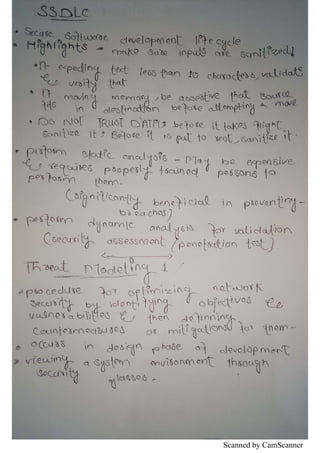 SSDLC
• Secure Software development life cycle
• Highlights - make sure inputs are sanitized!
• If expeding text less than 10 characters, validate
& verify that
• If moving memory, be assertive that source
fits in destination before attempting a move
• DO NOT TRUST DATA: before it takes flight
sanitize it: Before it is put to rest, sanitize it.
• perform static analysis - May be expensive
& requires properly trained persons to
perform them.
(significantly beneficial in preventing -
breaches)
• perform dynamic analysis for validation
(security assessment / penetration test)
Threat Modeling 1
procedure for optimizing network
security by identifying objectives &
vulnerabilities & then definning
countermeasures or mitigations for them-
occurs in design phase of development
viewing a system environment through
security glasses -
Scanned by CamScanner